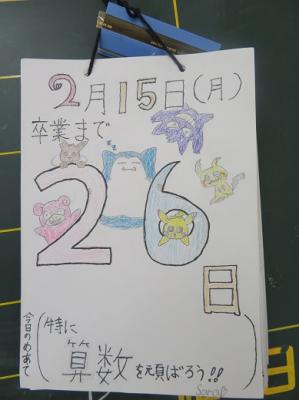 2月15日(月)
卒業まで
26
日
今日のめあて
(特に
算数を頑ばろう!!)